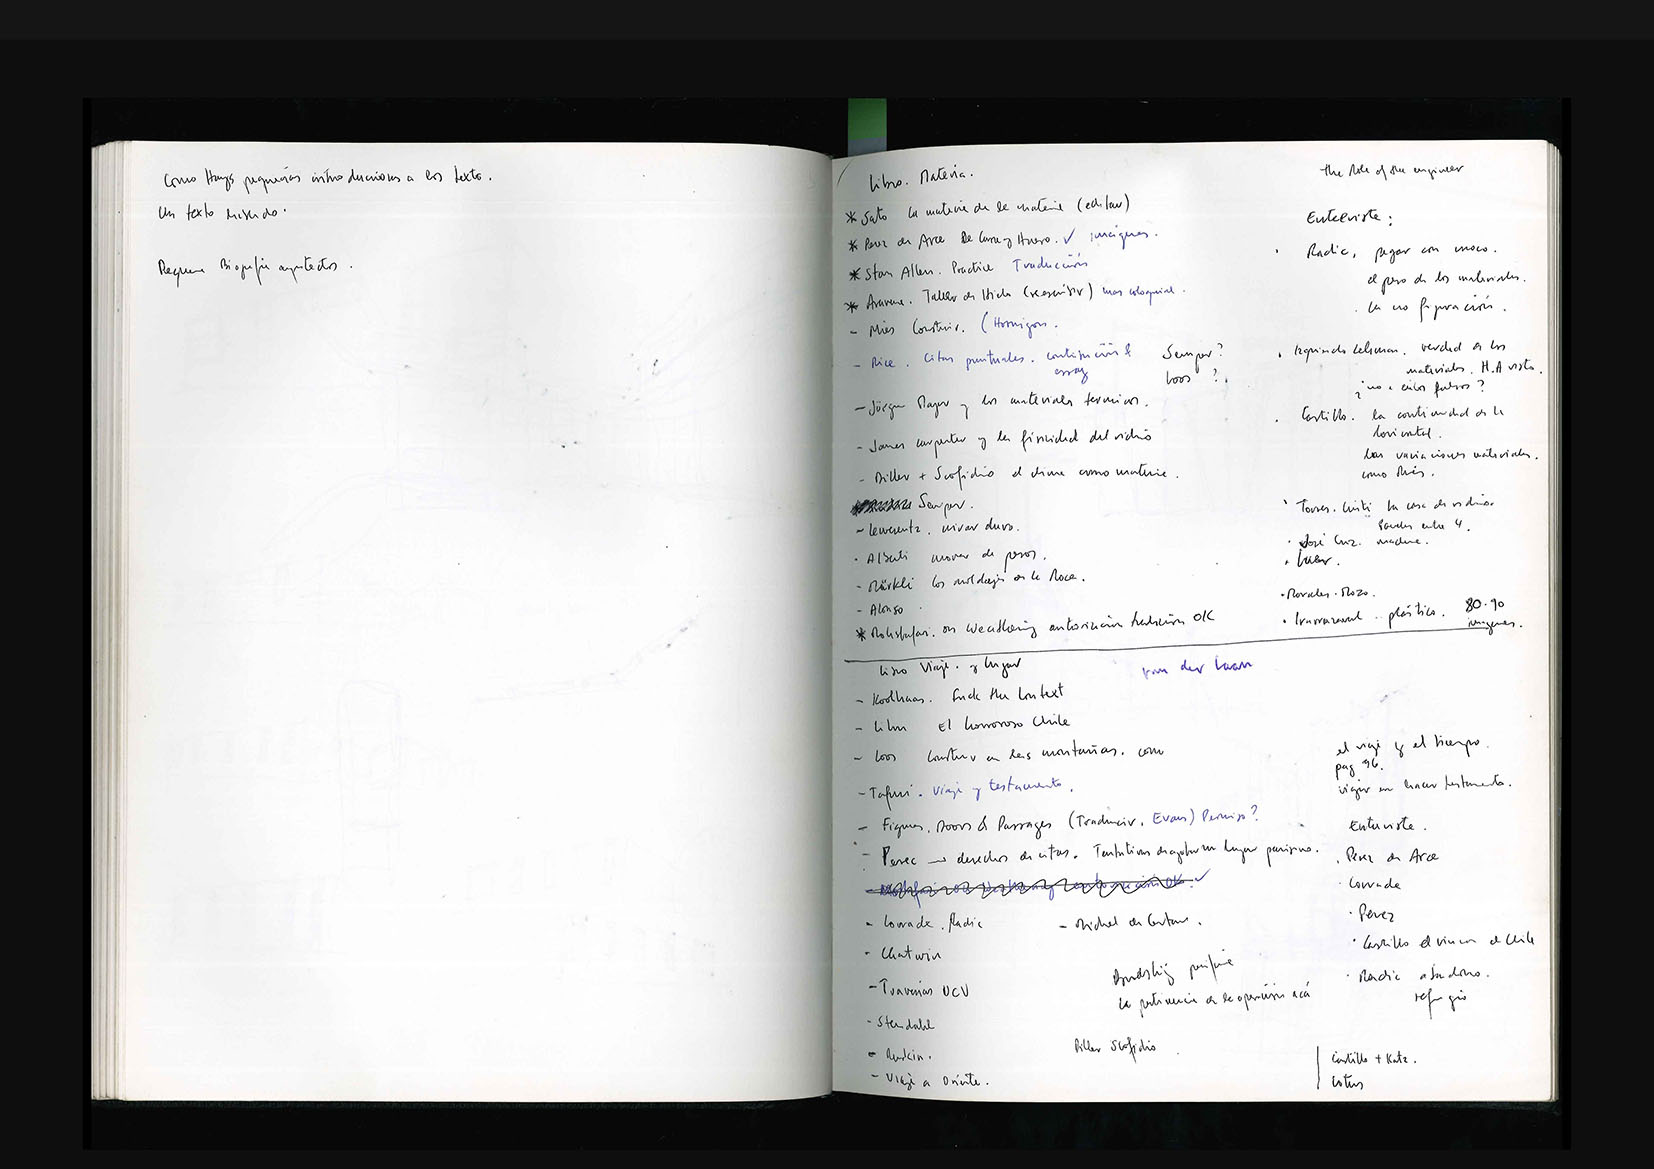 Como Hays pequeñas introducciones a los texto.
Un texto
Pequeña Biografía arquitectos.
Libro. Materia.
* Sato la materia de la materia (editar)
* Perez de Arce De Carne y Hueso. ✓ imágenes.
* Stan Allen. Practice Traducción
* Aravena. Taller de (reescribir) mas coloquial.
- Mies Construir. (Hormigon.
- Rice. Citas puntuales.
essay
Semper?
Loos ?.
- Jörgen Mayer y los materiales termicos.
- James carpenter y la fisicidad del vidrio
- Diller + Scofidio el clima como materia.
Semper.
- Lewerentz. mirar duro.
- Alberti mover de pesos.
- Märkli los moldajes de la Roca.
- Alonso
* Mohsfafari. on Weathering autorización traducción OK
the Role of the engineer
Entrevista:
· Radic, pegar con moco.
el peso de los materiales.
· la no figuración.
· Izquierdo Lehman. verdad de los
materiales. H.A vista.
¿no a cielos falsos?
· Castillo. la continuidad de la
horizontal.
las variaciones materiales.
como Mies.
· Torres. Cristi la casa de vidrio.
Sandes calle 4.
· José Cruz. madera.
· Klotz.
· Morales. Mozo.
· Irarrazaval .. plástico. 80-90
imagenes.
Libro Viaje. y lugar
van der Laan
- Koolhaas. Fuck the Context
- Lihn El horroroso Chile
- Loos Construir en las montañas. como
- Tafuri. Viaje y testamento.
- Figures, Doors & Passages (Traducir. Evans) Permiso?
- Perec → derechos de citas. Tentativas de agotar un lugar parisino.
- Lowrade. Radic
- Michel de Certau.
- Chatwin
- Travesias UCV
- Stendahl
- Ruskin.
- Viaje a Oriente.
Brodsky
la pertinencia de la operación acá
Diller Scofidio
el viaje y el tiempo.
pag 96.
viajar en hacer testamento.
Entrevista.
· Perez de Arce
· Lowrade
· Perez
· Castillo el rincon de Chile
· Radic abandono.
refugio
Castillo + Katz.
Lotus